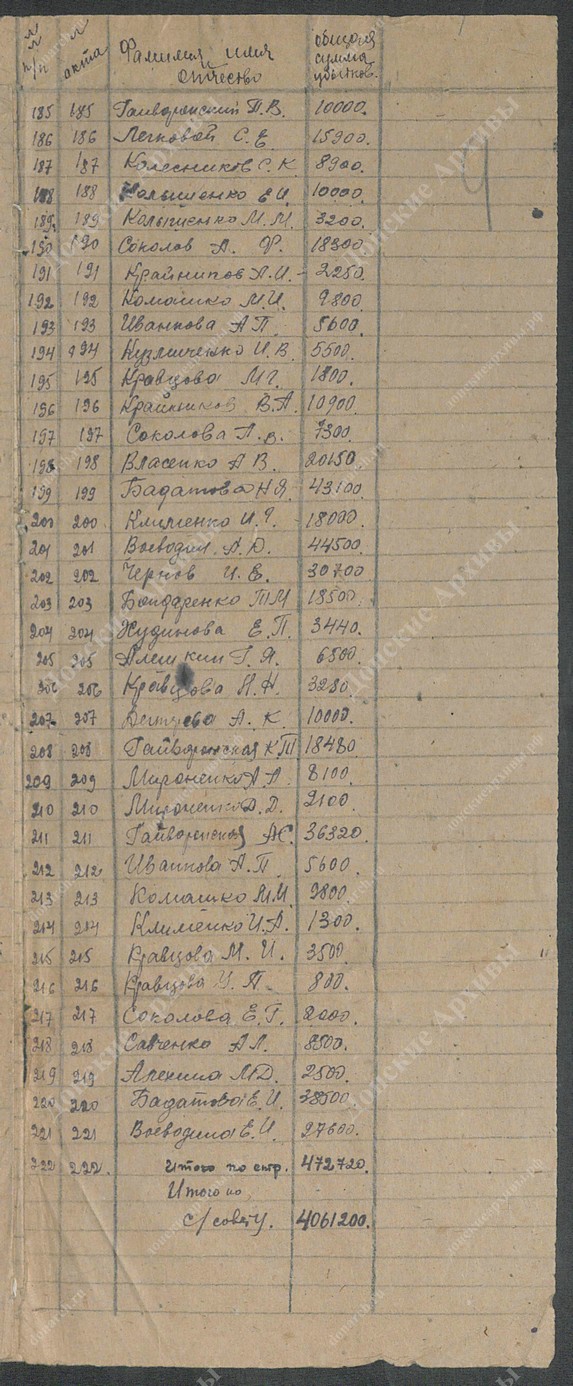 № п/п № акта Фамилия имя отчество общая сумма убытков.
185 185 Гайворонский П.В. 10000.
186 186 Легковой С. Е. 15900.
187 187 Колесников С. К 8900.
188 188 Е И. 10000.
189. 189 М. М. 3200.
190 190 Соколов А. Ф. 18300.
191 191 А.И. - 2250.
192 192 Комашко М.И. 9800.
193 193 Иванкова А П. 5600.
194 194 Кузмиченко И. В. 5500.
195 195 Кравцова М 1800.
196 196 Крайников В.А. 10900.
197 197 Соколова 7300.
198 198 Власенко А В. 20150.
199 199 Бадатова Н Я. 43100.
200 200 Клименко И. 18000.
201 201 Воеводин А. Д. 44500.
202 202 Чернов И. Е. 30700
203 203 Бондаренко Т М 18500.
204 204 Жудинова Е. П. 3440.
205 205 Алешкин Г. Я. 6500.
206 206 Кравцова 3280.
207 207 А. К. 10000.
208 208 Гайворонская К П. 18480
209 209 Мироненко А Л. 8100.
210 210 Мироненко Д. Д. 2100.
211 211 Гайворонская АС. 36320.
212 212 Иванкова А. П. 5600.
213 213 Комашко М.М. 9800.
214 214 Клименко И. А. 1300.
215 215 Кравцова М. И. 3500.
216 216 Кравцова 800.
217 217 Соколова Е. Г. 2000.
218 218 Савченко А Л. 8500.
219 219 Алехина М Д. 2500.
220 220 Бадатова Е. И. 38500.
221 221 Воеводина Е. И. 27600.
222 222. Итого по стр. 472720.
Итого по
с/совету. 4061200.
9
Донские Архивы
donarch.ru
донскиеархивы.рф